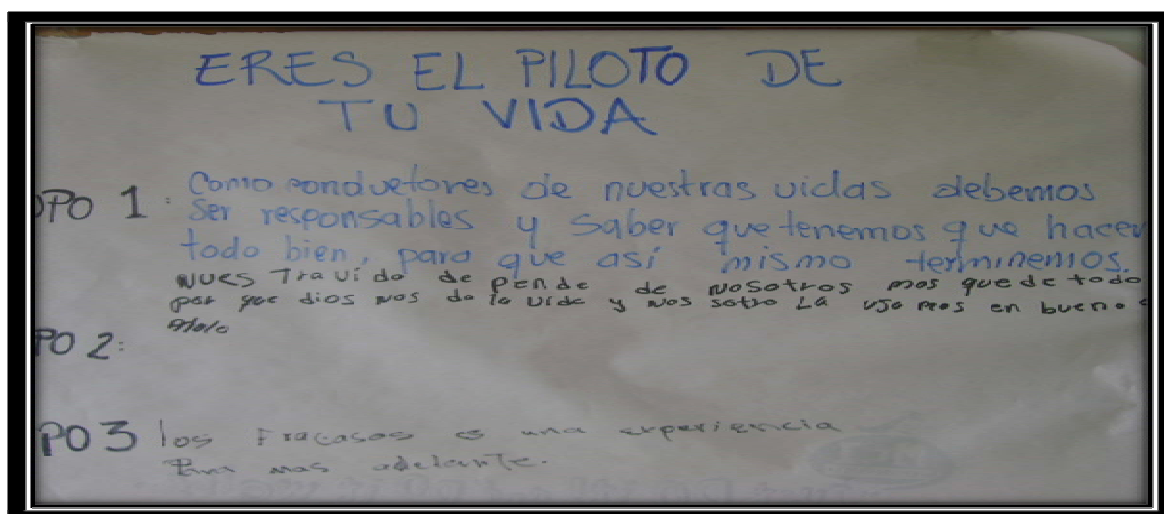 ERES EL PILOTO DE
TU VIDA
OPO 1: Como conductores de nuestras vidas debemos
Ser responsables y saber que tenemos que hacer
todo bien, para que así mismo terminemos.
NUES Tra vida de pende de NOSOTROS mas que de todo
por que dios nos da la vida y nos sotro La usa mos en bueno o
malo
PO 2:
PO 3 los Fracasos es una experiencia
Para mas adelante.